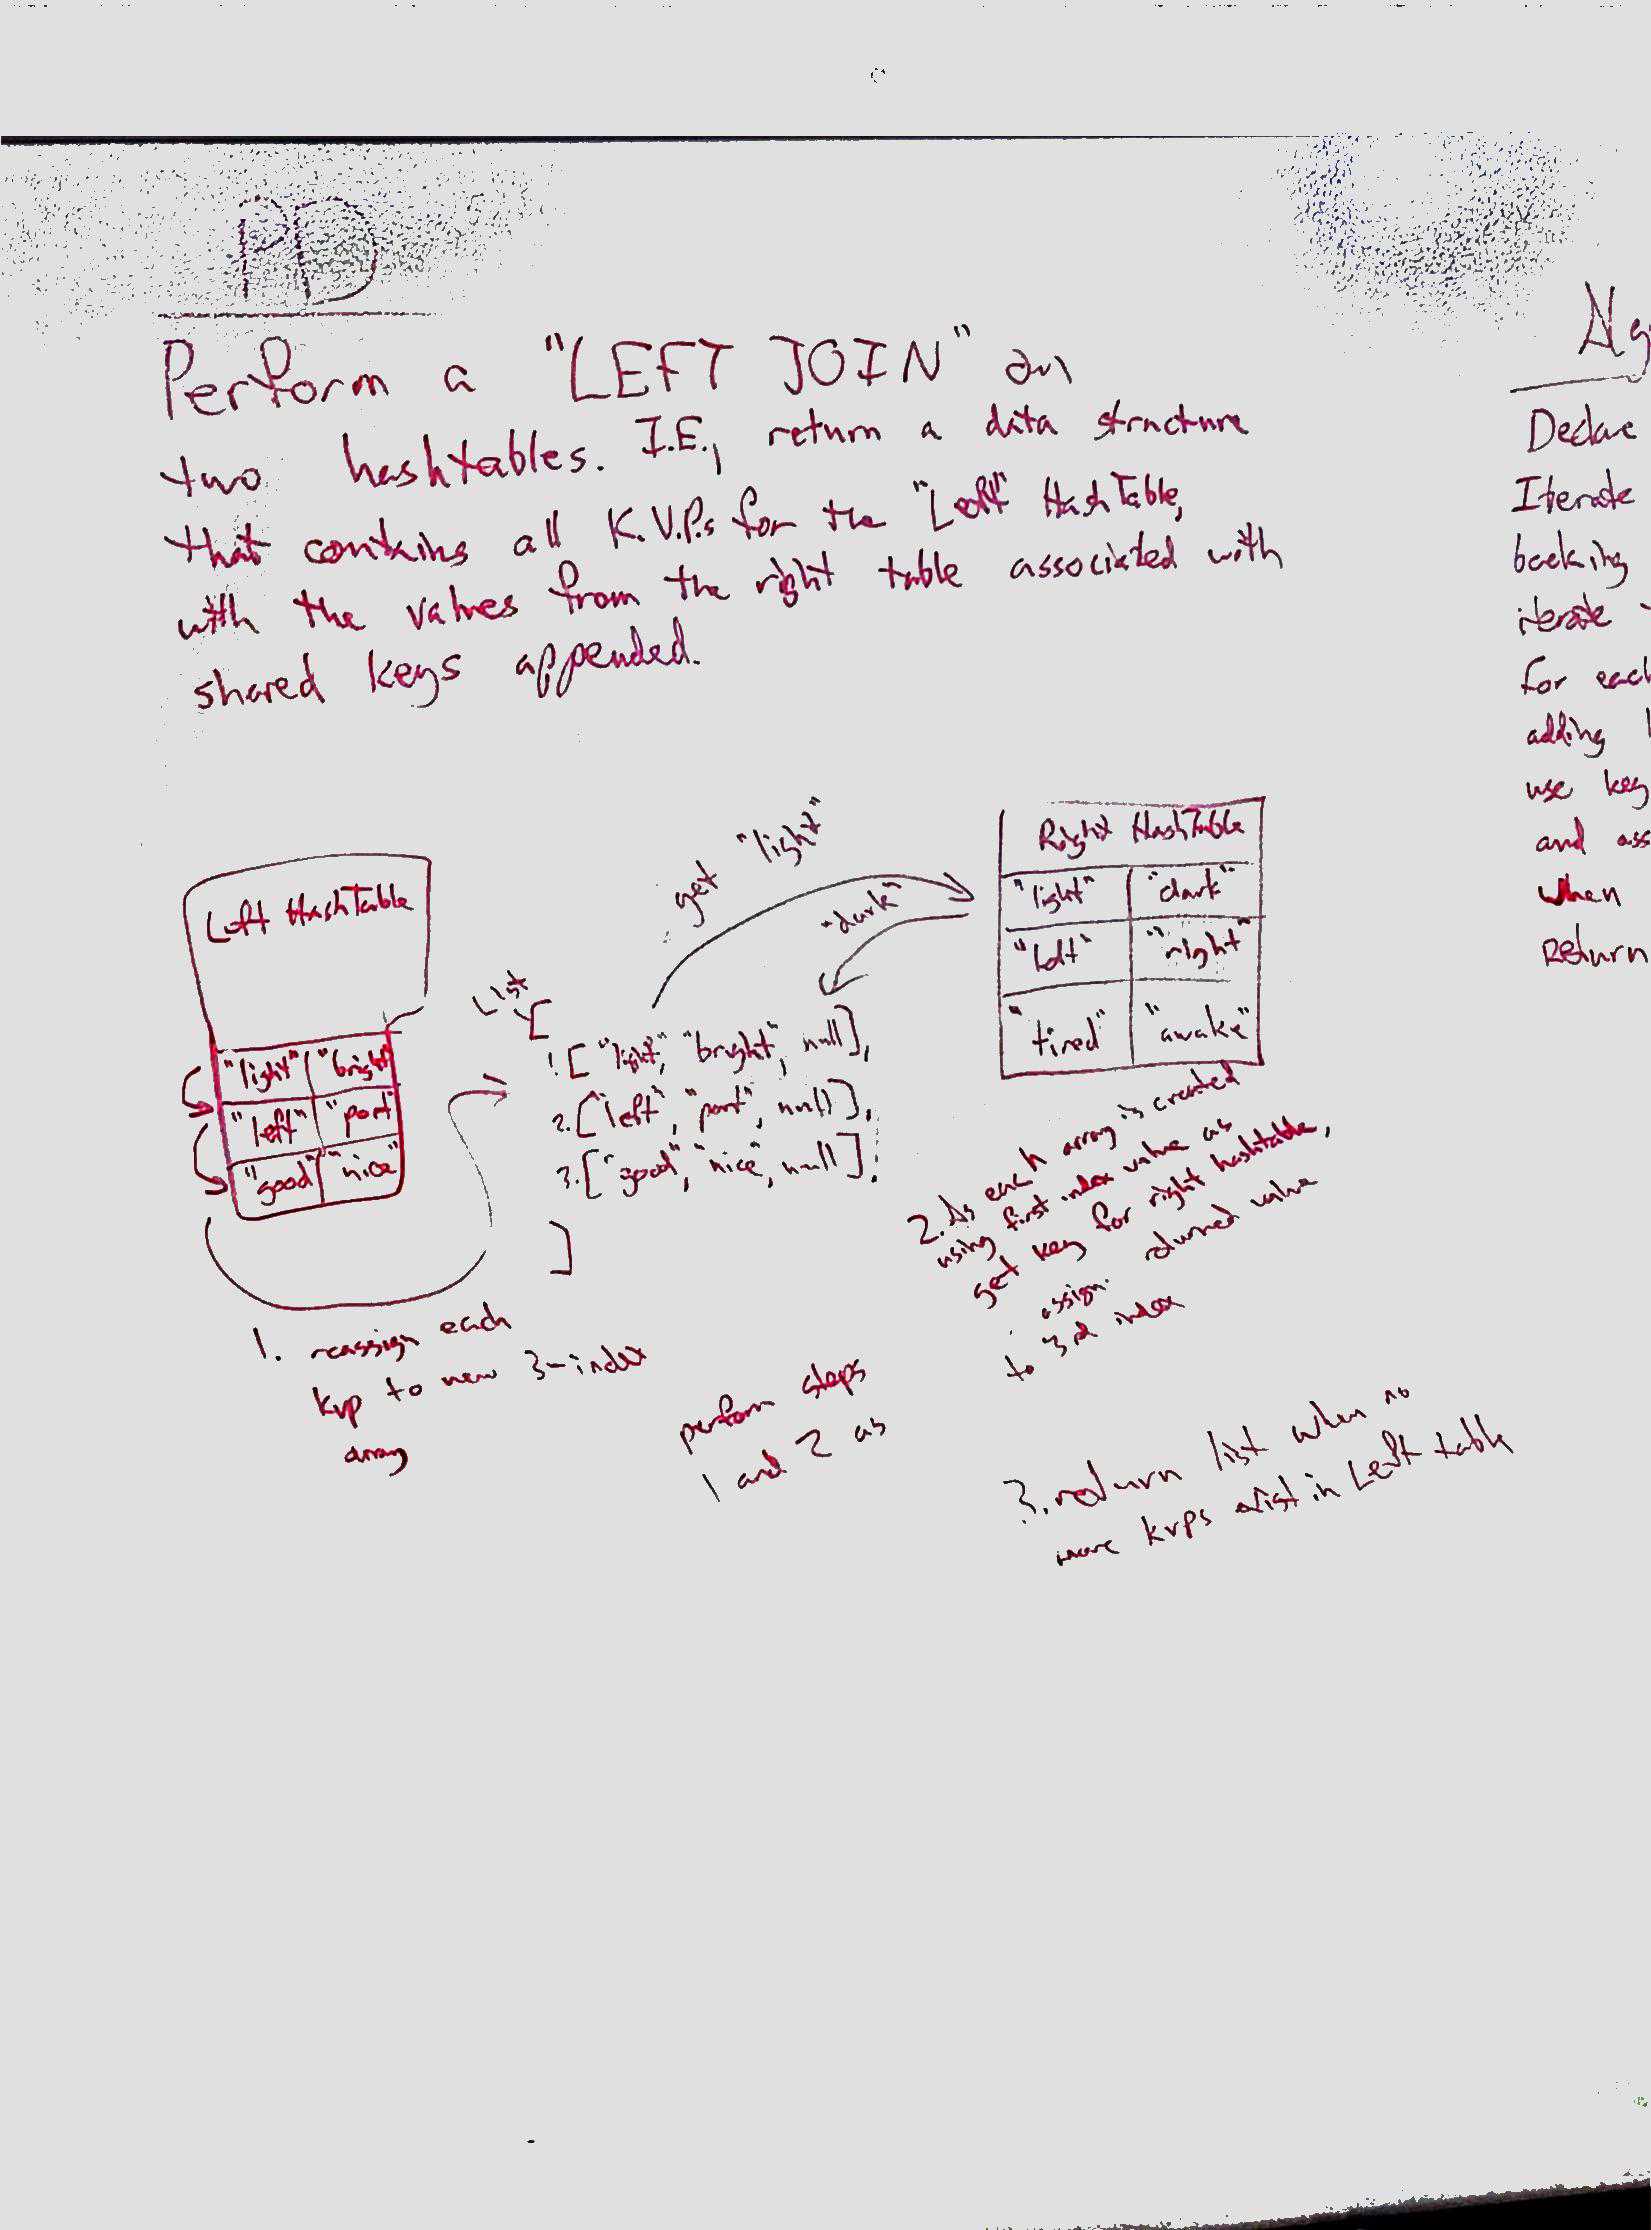 PD
Perform a "LEFT JOIN" on
two hashtables. I.E., return a data structure
that contains all K.V.P.s for the "Left" HashTable,
with the values from the right table associated with
shared keys appended.
Left HashTable
"light" "bright"
"left" "port"
"good" "nice"
1. reassign each
kvp to new 3-index
array
List
[
1. ["light", "bright", null],
2. ["left", "port", null],
3. ["good", "nice", null];
]
get "light"
"dark"
Right HashTable
"light" "dark"
"left" "right"
"tired" "awake"
2. As each array is created
using first index value as
get key for right hashtable,
assign returned value
to 3rd index
perform steps
1 and 2 as
3. return list when no
more kvps exist in Left table
Alg
Declare
Iterate
backing
iterate
for each
adding
use key
and ass
when
Return